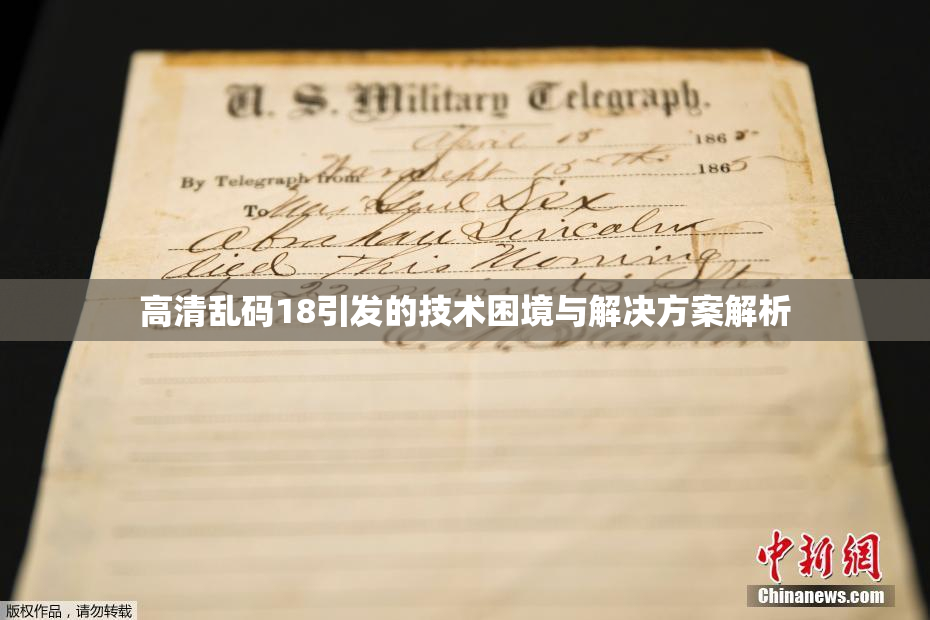 U. S. Military Telegraph.
April 15 1865
By Telegraph from War Dept 15th 1865
To Maj Genl Dix
Abraham Lincoln
died This Morning
at 22 minutes after
高清乱码18引发的技术困境与解决方案解析
E. M. Stanton
中新網
Chinanews.com
版权作品，请勿转载